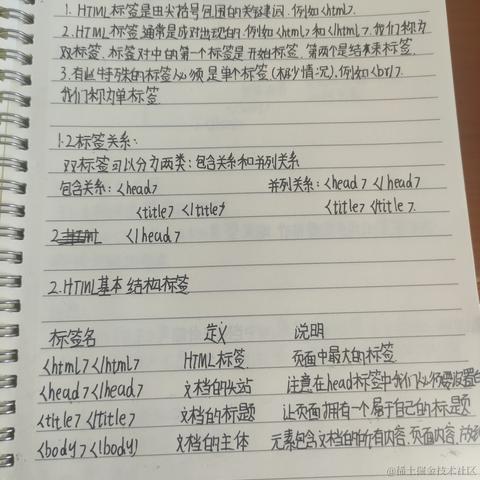 1. HTML标签是由尖括号包围的关键词,例如<html>.
2. HTML标签通常是成对出现的,例如<html>和</html>,我们称为
双标签.标签对中的第一个标签是开始标签,第二个是结束标签.
3.有些特殊的标签必须是单个标签(极少情况),例如<br/>.
我们称为单标签.
1.2标签关系:
双标签可以分为两类:包含关系和并列关系
包含关系: <head> 并列关系: <head> </head>
<title> </title> <title> </title>.
2. </head>
2.HTML基本结构标签
标签名 定义 说明
<html> </html> HTML标签 页面中最大的标签
<head> </head> 文档的头部 注意在head标签中我们必须要设置的
<title> </title> 文档的标题 让页面拥有一个属于自己的标题
<body> </body> 文档的主体 元素包含文档的所有内容,页面内容,
@稀土掘金技术社区